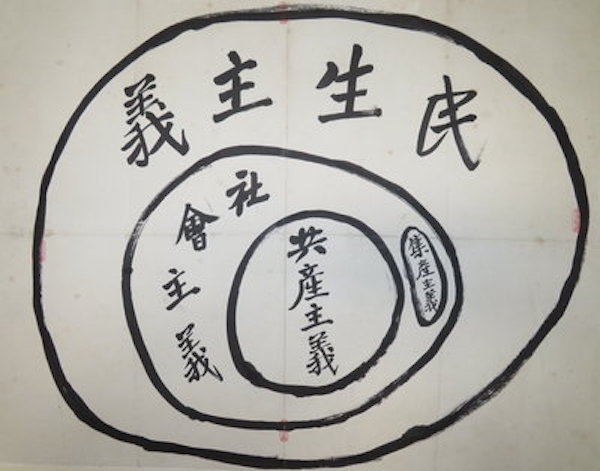 民生主義
社會主義
共產主義
集產主義